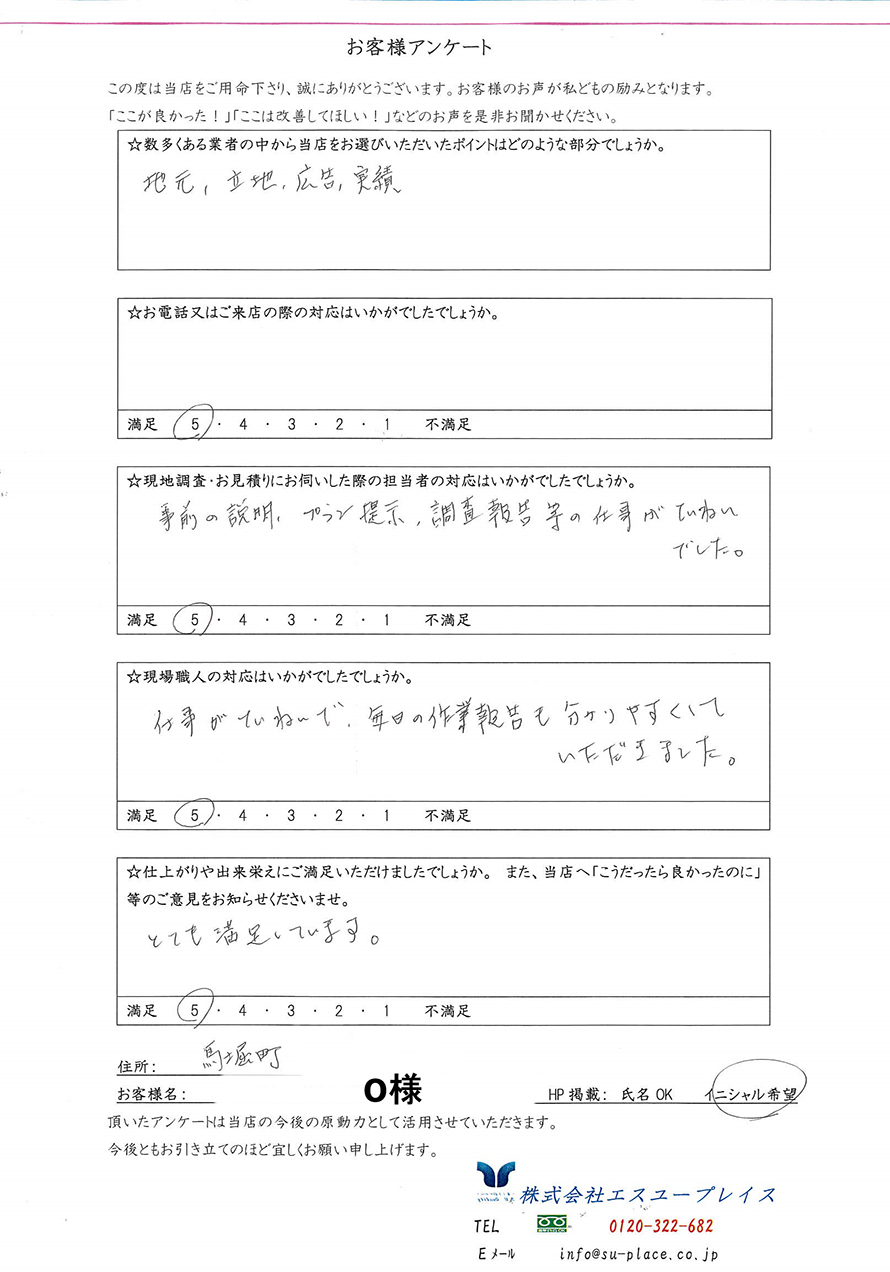 お客様アンケート
この度は当店をご用命下さり、誠にありがとうございます。お客様のお声が私どもの励みとなります。
「ここが良かった！」「ここは改善してほしい！」などのお声を是非お聞かせください。
☆数多くある業者の中から当店をお選びいただいたポイントはどのような部分でしょうか。
地元，立地，広告，実績
☆お電話又はご来店の際の対応はいかがでしたでしょうか。
満足 5 ・ 4 ・ 3 ・ 2 ・ 1 不満足
☆現地調査・お見積りにお伺いした際の担当者の対応はいかがでしたでしょうか。
事前の説明，プラン提示，調査報告等の仕事がていねい
でした。
満足 5 ・ 4 ・ 3 ・ 2 ・ 1 不満足
☆現場職人の対応はいかがでしたでしょうか。
仕事がていねいで，毎日の作業報告も分かりやすくして
いただきました。
満足 5 ・ 4 ・ 3 ・ 2 ・ 1 不満足
☆仕上がりや出来栄えにご満足いただけましたでしょうか。 また、当店へ「こうだったら良かったのに」
等のご意見をお知らせくださいませ。
とても満足しています。
満足 5 ・ 4 ・ 3 ・ 2 ・ 1 不満足
住所： 馬堀町
お客様名： O様 HP掲載： 氏名OK イニシャル希望
頂いたアンケートは当店の今後の原動力として活用させていただきます。
今後ともお引き立てのほど宜しくお願い申し上げます。
株式会社エスユープレイス
TEL 0120-322-682
Eメール info@su-place.co.jp